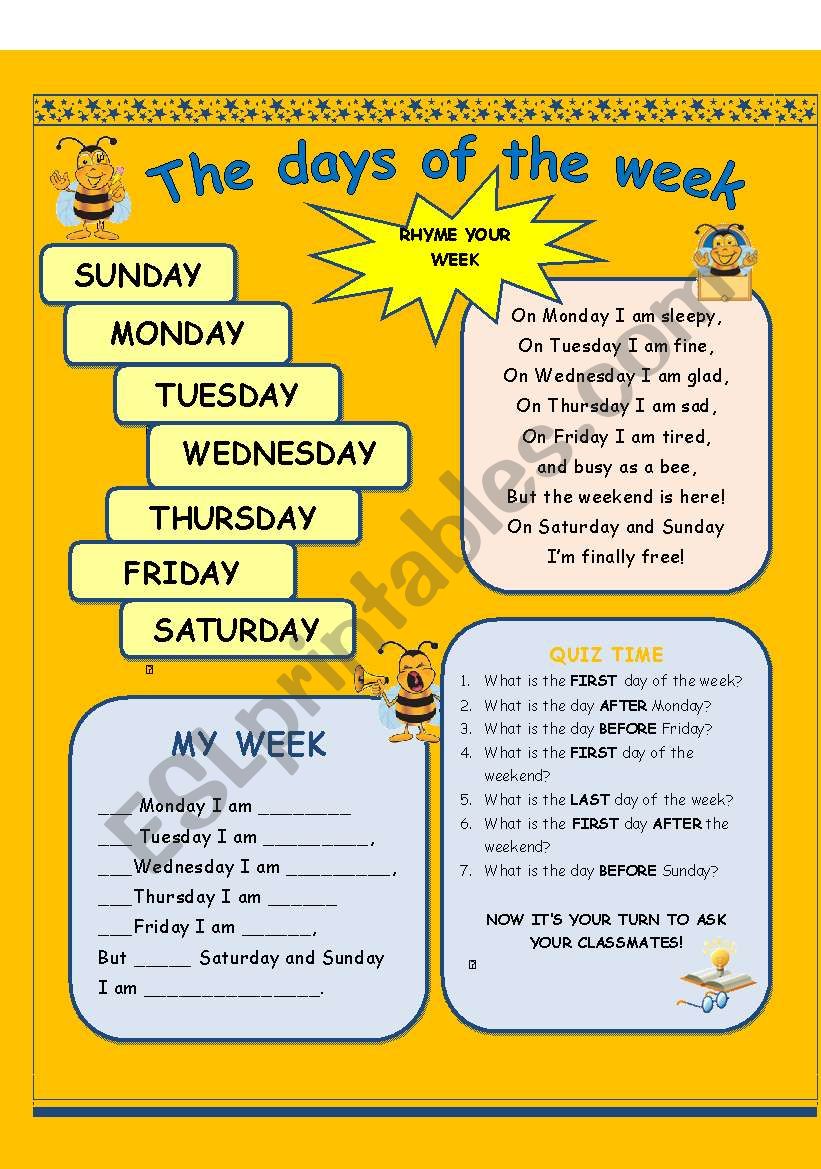 The days of the week
RHYME YOUR
WEEK
SUNDAY
MONDAY
TUESDAY
WEDNESDAY
THURSDAY
FRIDAY
SATURDAY
On Monday I am sleepy,
On Tuesday I am fine,
On Wednesday I am glad,
On Thursday I am sad,
On Friday I am tired,
and busy as a bee,
But the weekend is here!
On Saturday and Sunday
I'm finally free!
MY WEEK
___ Monday I am ________
___ Tuesday I am _________,
___Wednesday I am _________,
___Thursday I am ______
___Friday I am ______,
But _____ Saturday and Sunday
I am _______________.
QUIZ TIME
1. What is the FIRST day of the week?
2. What is the day AFTER Monday?
3. What is the day BEFORE Friday?
4. What is the FIRST day of the
weekend?
5. What is the LAST day of the week?
6. What is the FIRST day AFTER the
weekend?
7. What is the day BEFORE Sunday?
NOW IT'S YOUR TURN TO ASK
YOUR CLASSMATES!
ESLprintables.com